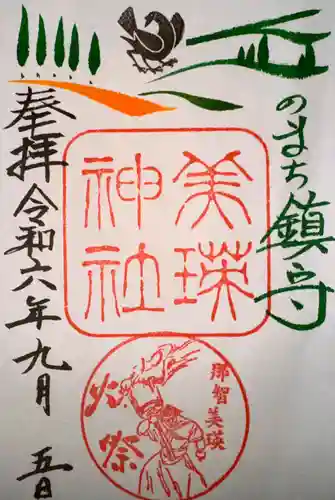 丘のまち鎮守
美瑛
神社
奉拝
令和六年九月五日
那智美瑛
火祭